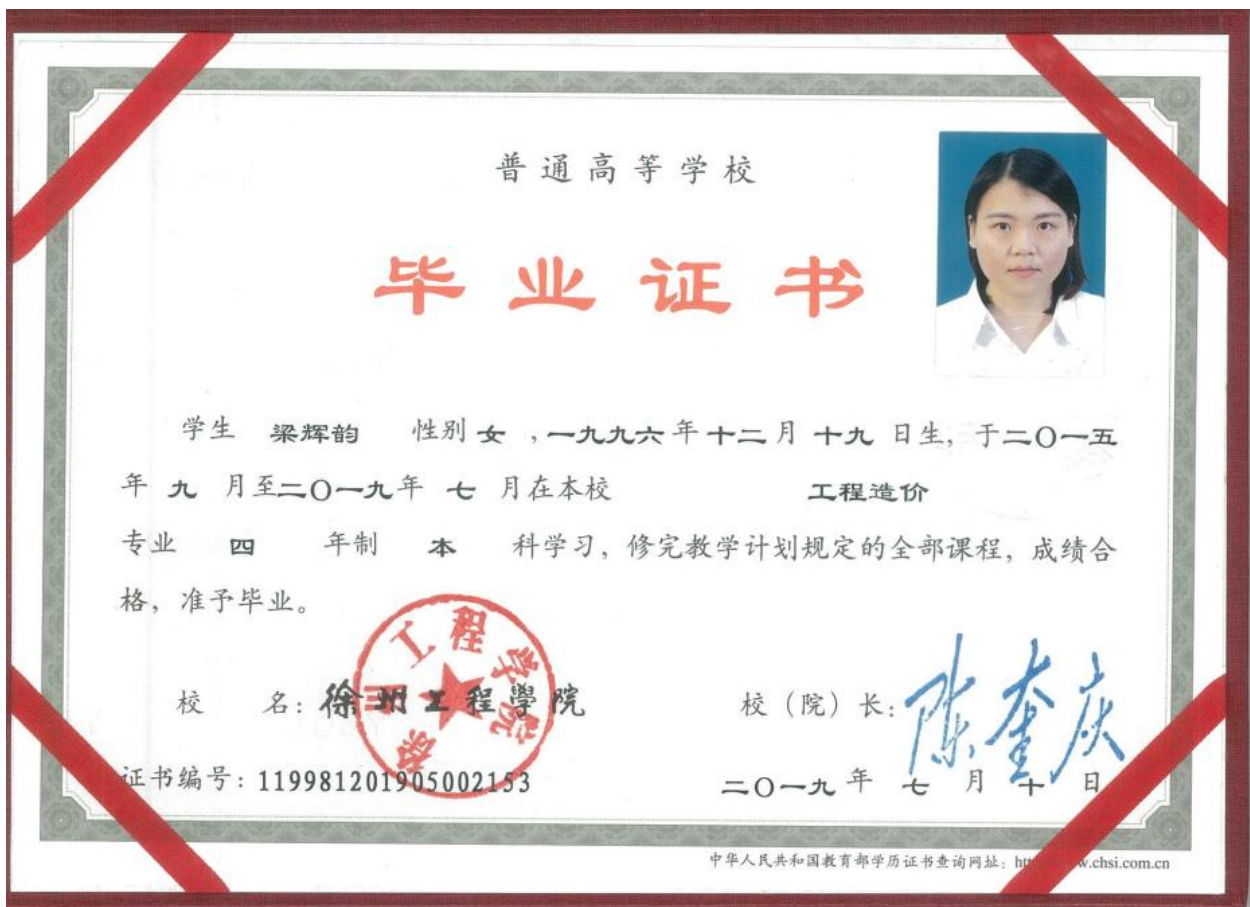 普通高等学校
毕业证书
学生 梁辉韵 性别 女 ，一九九六 年 十二 月 十九 日生，于二〇一五
年 九 月至二〇一九年 七 月在本校 工程造价
专业 四 年制 本 科学习，修完教学计划规定的全部课程，成绩合
格，准予毕业。
徐州工程学院
校 名：徐州工程學院 校（院）长：陈奎庆
证书编号：119981201905002153 二〇一九 年 七 月 十 日
中华人民共和国教育部学历证书查询网址：htt w.chsi.com.cn